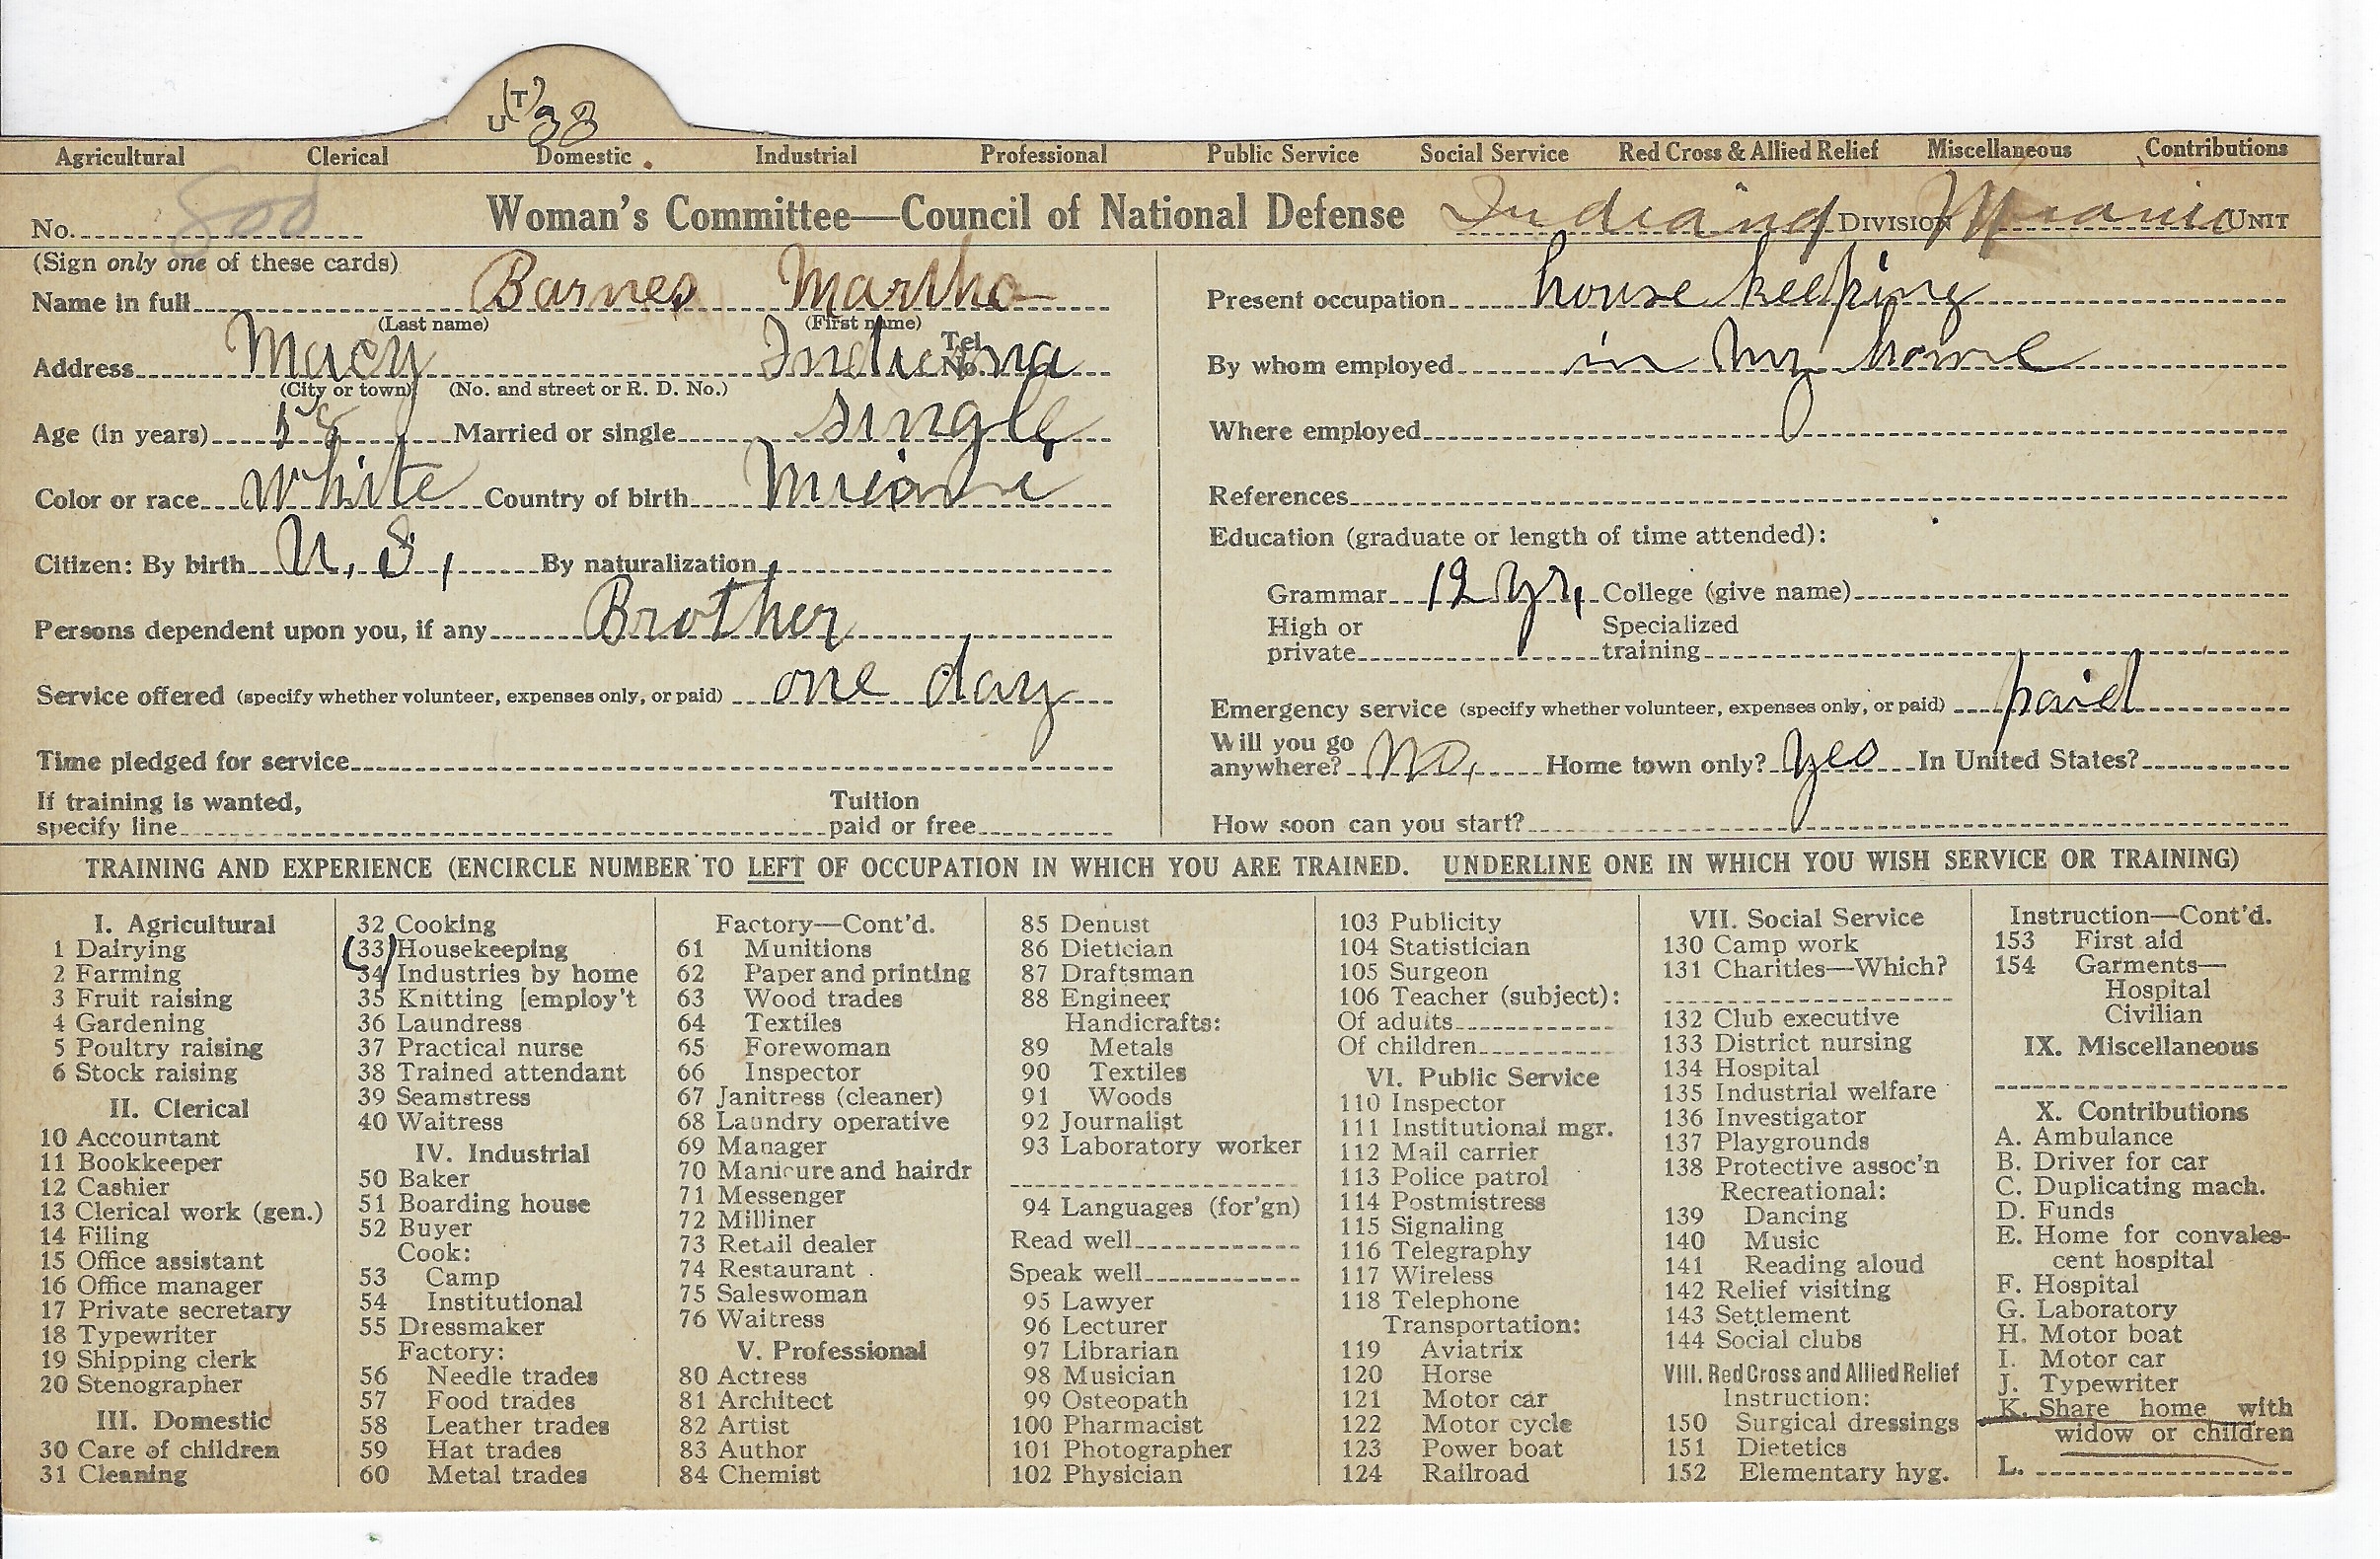 (T)
U 33
Agricultural Clerical Domestic Industrial Professional Public Service Social Service Red Cross & Allied Relief Miscellaneous Contributions
No. 800 Woman's Committee—Council of National Defense Indiana DIVISION Miami UNIT
(Sign only one of these cards)
Name in full Barnes Martha
(Last name) (First name)
Address Macy Indiana Tel. No.
(City or town) (No. and street or R. D. No.)
Age (in years) 58 Married or single single
Color or race White Country of birth Miami
Citizen: By birth U. S, By naturalization
Persons dependent upon you, if any Brother
Service offered (specify whether volunteer, expenses only, or paid) one day
Time pledged for service
If training is wanted,
specify line
Tuition
paid or free
Present occupation house keeping
By whom employed in my home
Where employed
References
Education (graduate or length of time attended):
Grammar 12 yr, College (give name)
High or
private
Specialized
training
Emergency service (specify whether volunteer, expenses only, or paid) paid
Will you go
anywhere? No, Home town only? yes In United States?
How soon can you start?
TRAINING AND EXPERIENCE (ENCIRCLE NUMBER TO LEFT OF OCCUPATION IN WHICH YOU ARE TRAINED. UNDERLINE ONE IN WHICH YOU WISH SERVICE OR TRAINING)
I. Agricultural
1 Dairying
2 Farming
3 Fruit raising
4 Gardening
5 Poultry raising
6 Stock raising
II. Clerical
10 Accountant
11 Bookkeeper
12 Cashier
13 Clerical work (gen.)
14 Filing
15 Office assistant
16 Office manager
17 Private secretary
18 Typewriter
19 Shipping clerk
20 Stenographer
III. Domestic
30 Care of children
31 Cleaning
32 Cooking
(33) Housekeeping
34 Industries by home
35 Knitting [employ't
36 Laundress
37 Practical nurse
38 Trained attendant
39 Seamstress
40 Waitress
IV. Industrial
50 Baker
51 Boarding house
52 Buyer
Cook:
53 Camp
54 Institutional
55 Dressmaker
Factory:
56 Needle trades
57 Food trades
58 Leather trades
59 Hat trades
60 Metal trades
Factory—Cont'd.
61 Munitions
62 Paper and printing
63 Wood trades
64 Textiles
65 Forewoman
66 Inspector
67 Janitress (cleaner)
68 Laundry operative
69 Manager
70 Manicure and hairdr
71 Messenger
72 Milliner
73 Retail dealer
74 Restaurant
75 Saleswoman
76 Waitress
V. Professional
80 Actress
81 Architect
82 Artist
83 Author
84 Chemist
85 Dentist
86 Dietician
87 Draftsman
88 Engineer
Handicrafts:
89 Metals
90 Textiles
91 Woods
92 Journalist
93 Laboratory worker
94 Languages (for'gn)
Read well
Speak well
95 Lawyer
96 Lecturer
97 Librarian
98 Musician
99 Osteopath
100 Pharmacist
101 Photographer
102 Physician
103 Publicity
104 Statistician
105 Surgeon
106 Teacher (subject):
Of adults
Of children
VI. Public Service
110 Inspector
111 Institutional mgr.
112 Mail carrier
113 Police patrol
114 Postmistress
115 Signaling
116 Telegraphy
117 Wireless
118 Telephone
Transportation:
119 Aviatrix
120 Horse
121 Motor car
122 Motor cycle
123 Power boat
124 Railroad
VII. Social Service
130 Camp work
131 Charities—Which?
132 Club executive
133 District nursing
134 Hospital
135 Industrial welfare
136 Investigator
137 Playgrounds
138 Protective assoc'n
Recreational:
139 Dancing
140 Music
141 Reading aloud
142 Relief visiting
143 Settlement
144 Social clubs
VIII. Red Cross and Allied Relief
Instruction:
150 Surgical dressings
151 Dietetics
152 Elementary hyg.
Instruction—Cont'd.
153 First aid
154 Garments—
Hospital
Civilian
IX. Miscellaneous
X. Contributions
A. Ambulance
B. Driver for car
C. Duplicating mach.
D. Funds
E. Home for convales-
cent hospital
F. Hospital
G. Laboratory
H. Motor boat
I. Motor car
J. Typewriter
K. Share home with
widow or children
L.